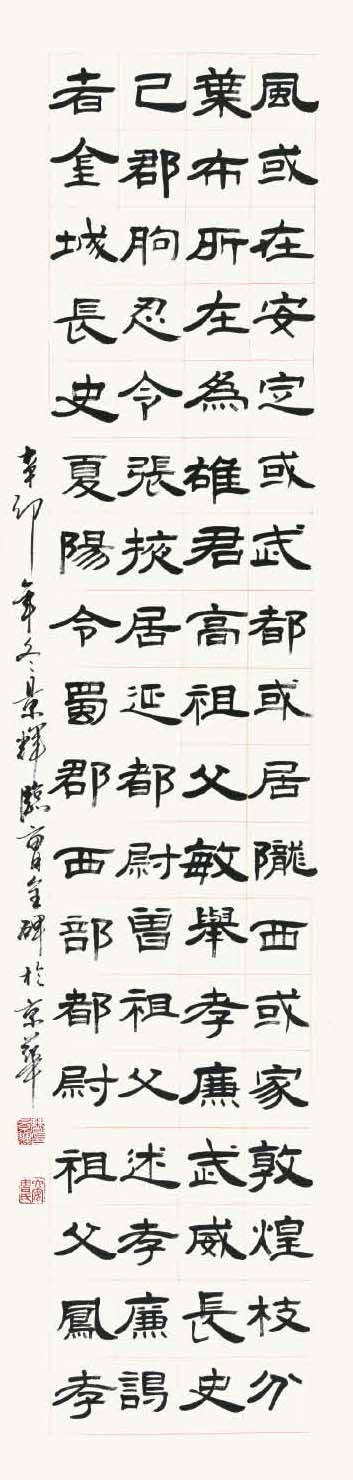 風或在安定或武都或居隴西或家敦煌枝分
葉布所在為雄君高祖父敏舉孝廉武威長史
己郡朐忍令張掖居延都尉曾祖父述孝廉謁
者金城長史夏陽令蜀郡西部都尉祖父鳳孝
辛卯年冬景輝臨曹全碑於京華